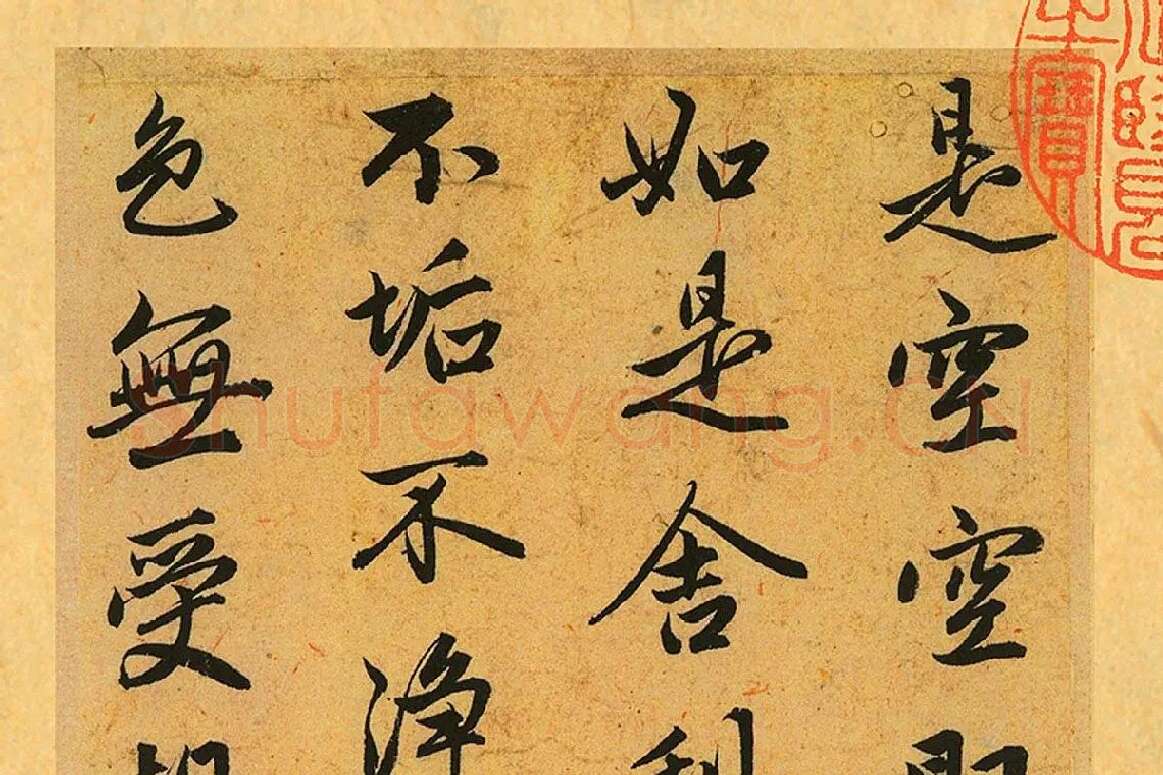 是空空即
如是舍利
不垢不淨
色無受想
shufawang.cn